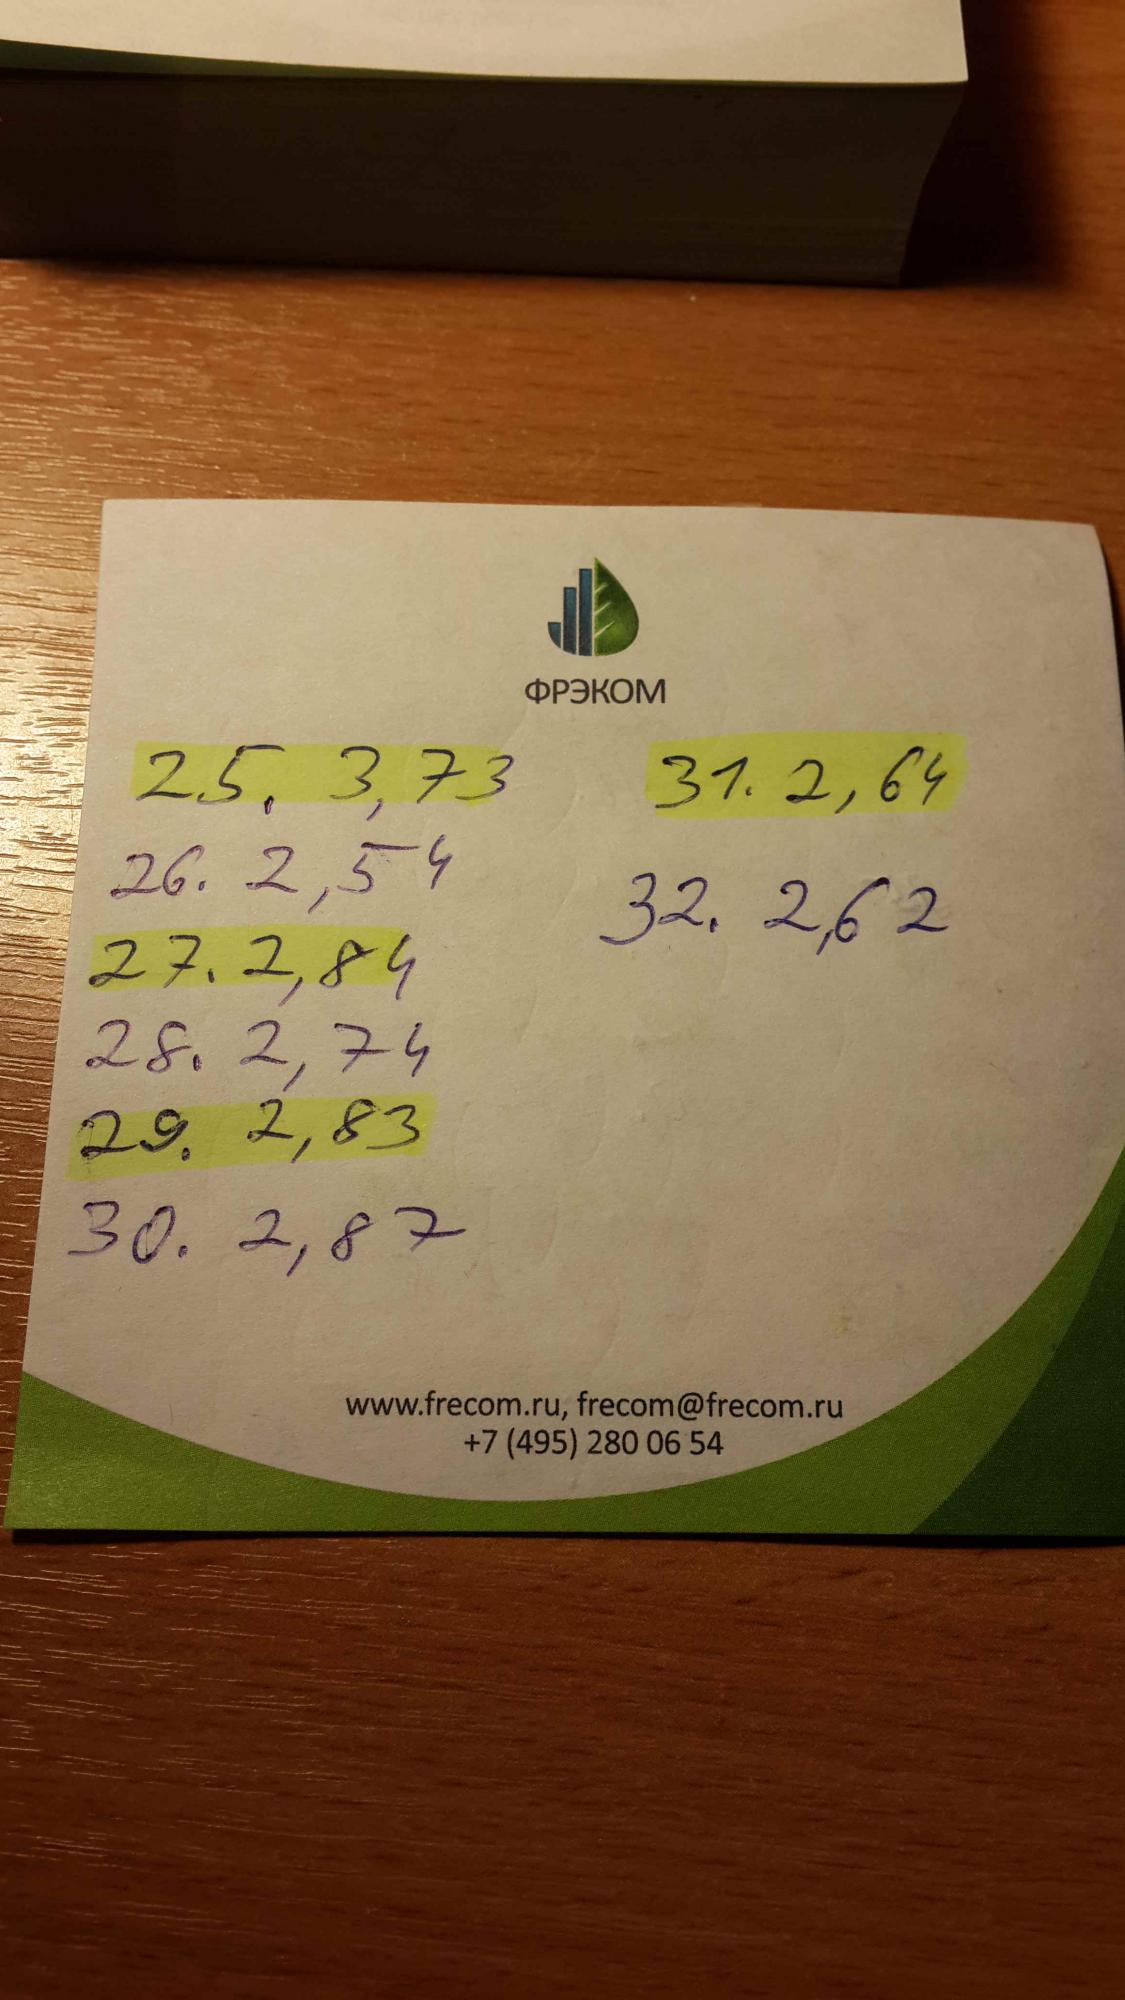 ФРЭКОМ
25. 3,73
26. 2,54
27. 2,84
28. 2,74
29. 2,83
30. 2,87
31. 2,64
32. 2,62
www.frecom.ru, frecom@frecom.ru
+7 (495) 280 06 54